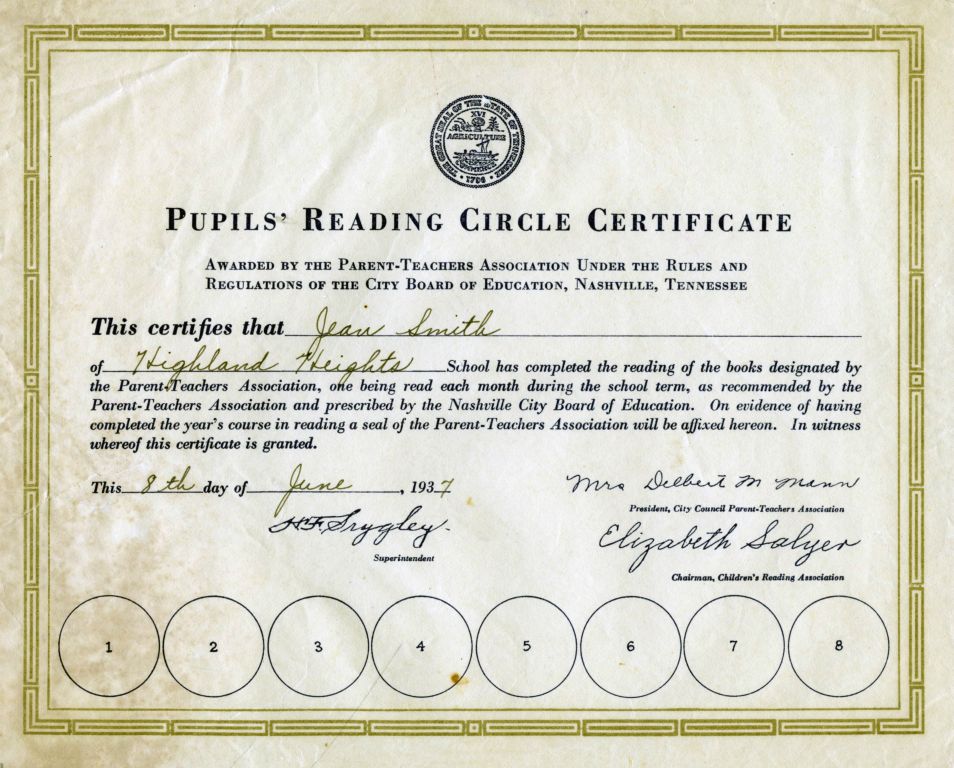 THE GREAT SEAL OF THE STATE OF TENNESSEE
XVI
AGRICULTURE
COMMERCE
1796
PUPILS' READING CIRCLE CERTIFICATE
AWARDED BY THE PARENT-TEACHERS ASSOCIATION UNDER THE RULES AND
REGULATIONS OF THE CITY BOARD OF EDUCATION, NASHVILLE, TENNESSEE
This certifies that Jean Smith
of Highland Heights School has completed the reading of the books designated by
the Parent-Teachers Association, one being read each month during the school term, as recommended by the
Parent-Teachers Association and prescribed by the Nashville City Board of Education. On evidence of having
completed the year's course in reading a seal of the Parent-Teachers Association will be affixed hereon. In witness
whereof this certificate is granted.
This 8th day of June, 1937
Mrs Delbert M Mann
President, City Council Parent-Teachers Association
H.F. Srygley
Superintendent
Elizabeth Salyer
Chairman, Children's Reading Association
1 2 3 4 5 6 7 8